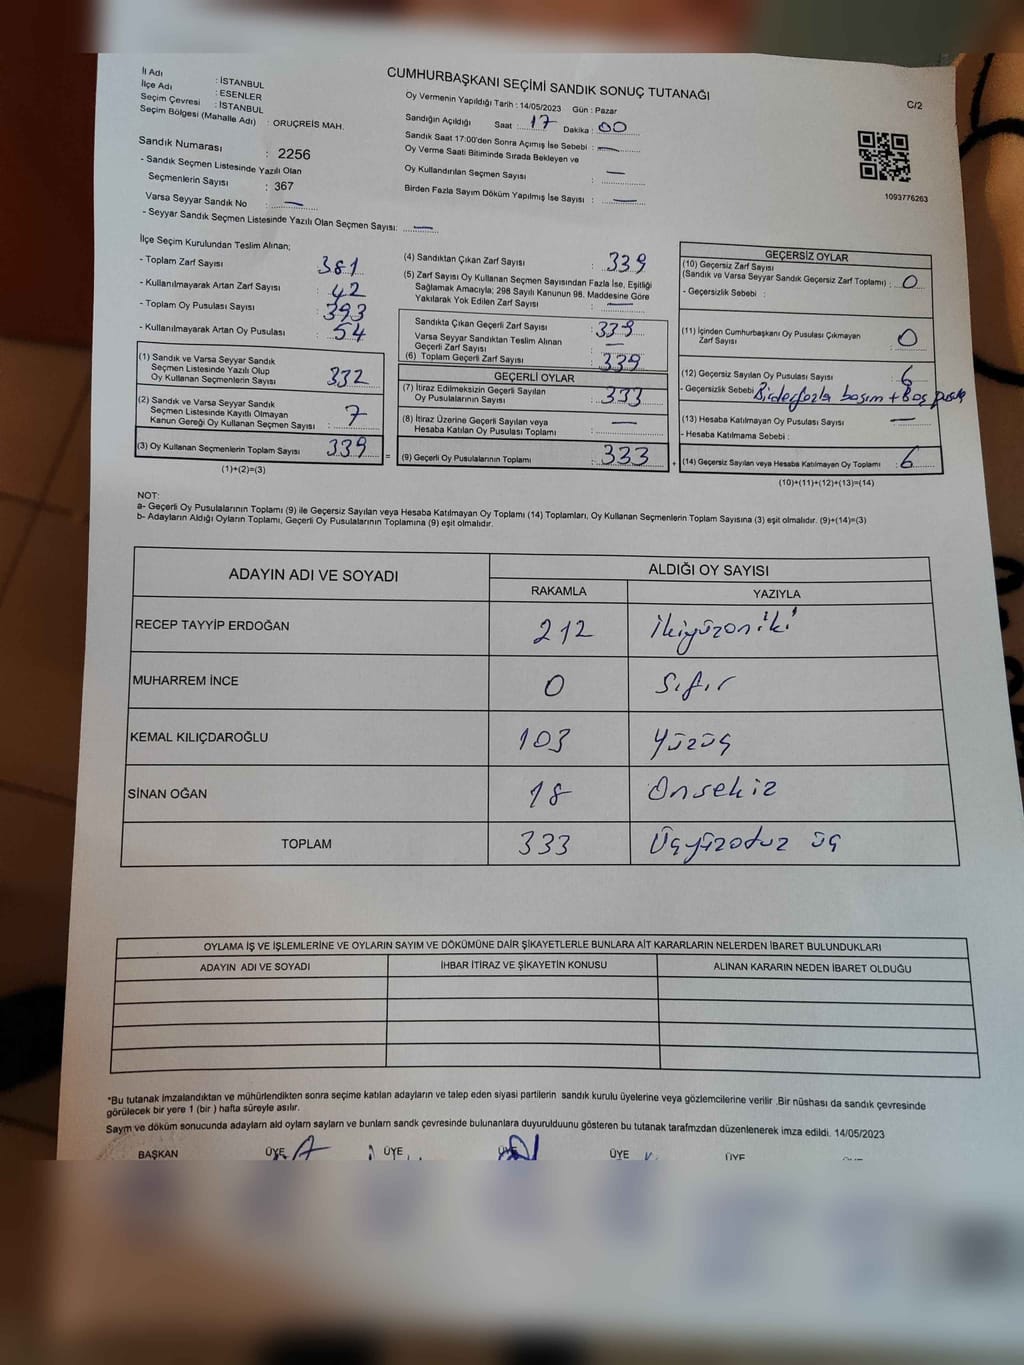 CUMHURBAŞKANI SEÇİMİ SANDIK SONUÇ TUTANAĞI
C/2
İl Adı : İSTANBUL
İlçe Adı : ESENLER
Seçim Çevresi : İSTANBUL
Seçim Bölgesi (Mahalle Adı) : ORUÇREİS MAH.
Sandık Numarası : 2256
- Sandık Seçmen Listesinde Yazılı Olan
Seçmenlerin Sayısı : 367
Varsa Seyyar Sandık No : —
- Seyyar Sandık Seçmen Listesinde Yazılı Olan Seçmen Sayısı: —
Oy Vermenin Yapıldığı Tarih : 14/05/2023 Gün : Pazar
Sandığın Açıldığı Saat : 17 Dakika : 00
Sandık Saat 17:00'den Sonra Açımış İse Sebebi : —
Oy Verme Saati Bitiminde Sırada Bekleyen ve
Oy Kullandırılan Seçmen Sayısı : —
Birden Fazla Sayım Döküm Yapılmış İse Sayısı : —
1093776263
İlçe Seçim Kurulundan Teslim Alınan;
- Toplam Zarf Sayısı : 381
- Kullanılmayarak Artan Zarf Sayısı : 42
- Toplam Oy Pusulası Sayısı : 393
- Kullanılmayarak Artan Oy Pusulası : 54
(1) Sandık ve Varsa Seyyar Sandık
Seçmen Listesinde Yazılı Olup
Oy Kullanan Seçmenlerin Sayısı : 332
(2) Sandık ve Varsa Seyyar Sandık
Seçmen Listesinde Kayıtlı Olmayan
Kanun Gereği Oy Kullanan Seçmen Sayısı : 7
(3) Oy Kullanan Seçmenlerin Toplam Sayısı : 339
(1)+(2)=(3)
=
(4) Sandıktan Çıkan Zarf Sayısı : 339
(5) Zarf Sayısı Oy Kullanan Seçmen Sayısından Fazla İse, Eşitliği
Sağlamak Amacıyla; 298 Sayılı Kanunun 98. Maddesine Göre
Yakılarak Yok Edilen Zarf Sayısı : —
Sandıkta Çıkan Geçerli Zarf Sayısı : 339
Varsa Seyyar Sandıktan Teslim Alınan
Geçerli Zarf Sayısı : —
(6) Toplam Geçerli Zarf Sayısı : 339
GEÇERLİ OYLAR
(7) İtiraz Edilmeksizin Geçerli Sayılan
Oy Pusulalarının Sayısı : 333
(8) İtiraz Üzerine Geçerli Sayılan veya
Hesaba Katılan Oy Pusulası Toplamı : —
(9) Geçerli Oy Pusulalarının Toplamı : 333
+
GEÇERSİZ OYLAR
(10) Geçersiz Zarf Sayısı
(Sandık ve Varsa Seyyar Sandık Geçersiz Zarf Toplamı) : 0
- Geçersizlik Sebebi :
(11) İçinden Cumhurbaşkanı Oy Pusulası Çıkmayan
Zarf Sayısı : 0
(12) Geçersiz Sayılan Oy Pusulası Sayısı : 6
- Geçersizlik Sebebi : Birden fazla basım + Boş
(13) Hesaba Katılmayan Oy Pusulası Sayısı : —
- Hesaba Katılmama Sebebi :
(14) Geçersiz Sayılan veya Hesaba Katılmayan Oy Toplamı : 6
(10)+(11)+(12)+(13)=(14)
NOT:
a- Geçerli Oy Pusulalarının Toplamı (9) ile Geçersiz Sayılan veya Hesaba Katılmayan Oy Toplamı (14) Toplamları, Oy Kullanan Seçmenlerin Toplam Sayısına (3) eşit olmalıdır. (9)+(14)=(3)
b- Adayların Aldığı Oyların Toplamı, Geçerli Oy Pusulalarının Toplamına (9) eşit olmalıdır.
ADAYIN ADI VE SOYADI ALDIĞI OY SAYISI
RAKAMLA YAZIYLA
RECEP TAYYİP ERDOĞAN 212 İkiyüzoniki
MUHARREM İNCE 0 Sıfır
KEMAL KILIÇDAROĞLU 103 Yüzüç
SİNAN OĞAN 18 Onsekiz
TOPLAM 333 Üçyüzotuz üç
OYLAMA İŞ VE İŞLEMLERİNE VE OYLARIN SAYIM VE DÖKÜMÜNE DAİR ŞİKAYETLERLE BUNLARA AİT KARARLARIN NELERDEN İBARET BULUNDUKLARI
ADAYIN ADI VE SOYADI İHBAR İTİRAZ VE ŞİKAYETİN KONUSU ALINAN KARARIN NEDEN İBARET OLDUĞU
*Bu tutanak imzalandıktan ve mühürlendikten sonra seçime katılan adayların ve talep eden siyasi partilerin sandık kurulu üyelerine veya gözlemcilerine verilir .Bir nüshası da sandık çevresinde
görülecek bir yere 1 (bir ) hafta süreyle asılır.
Sayım ve döküm sonucunda adayların ald oyların sayların ve bunların sandk çevresinde bulunanlara duyurulduunu gösteren bu tutanak tarafmzdan düzenlenerek imza edildi. 14/05/2023
BAŞKAN ÜYE ÜYE ÜYE ÜYE ÜYE